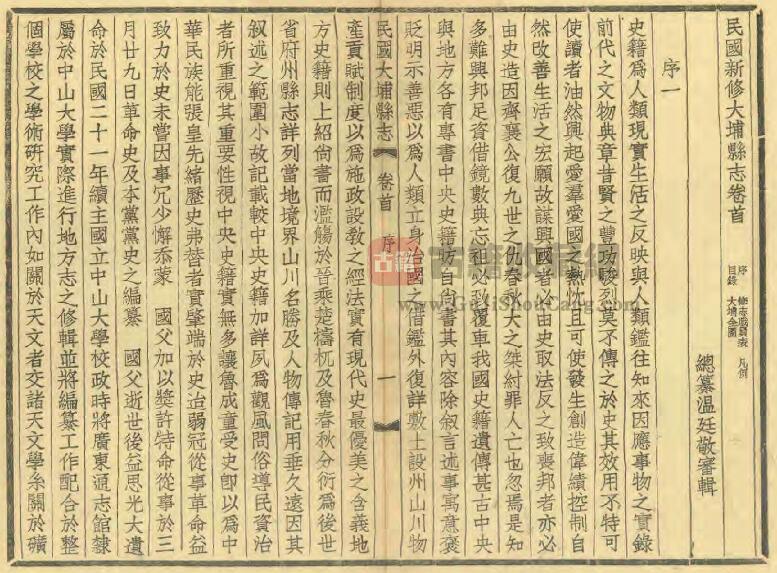 民國新修大埔縣志卷首
序 修志職員表 凡例
目錄 大埔全圖
總纂溫廷敬審輯
序一
史籍爲人類現實生活之反映與人類鑑往知來因應事物之實錄
前代之文物典章昔賢之豐功駿列莫不傳之於史其效用不特可
使讀者油然興起愛羣愛國之熱忱且可使發生創造偉績控制自
然改善生活之宏願故謀興國者必由史取法反之致喪邦者亦必
由史造因齊襄公復九世之仇春秋大之桀紂罪人亡也忽焉是知
多難興邦足資借鏡數典忘祖必致覆車我國史籍遺傳甚古中央
與地方各有專書中央史籍坊自尚書其內容除叙言述事寓意褒
貶明示善惡以爲人類立身治國之借鑑外復詳敷土設州山川物
民國大埔縣志 卷首 序 一
產貢賦制度以爲施政設教之經法實有現代史最優美之含義地
方史籍則上紹尙書而濫觴於晉乘楚檮杌及魯春秋分衍爲後世
省府州縣志詳列當地境界山川名勝及人物傳記用垂久遠因其
叙述之範圍小故記載較中央史籍加詳夙爲觀風問俗導民資治
者所重視其重要性視中央史籍實無多讓魯成童受史卽以爲中
華民族能張皇先緒歷史弗替者實肇端於史迨弱冠從事革命益
致力於史未嘗因事冗少懈忝蒙 國父加以獎許特命從事於三
月廿九日革命史及本黨黨史之編纂 國父逝世後益思光大遺
命於民國二十一年續主國立中山大學校政時將廣東通志館隸
屬於中山大學實際進行地方志之修輯並將編纂工作配合於整
個學校之學術研究工作內如關於天文者交諸天文學系關於礦
古籍收藏網
www.GujiShouCang.com